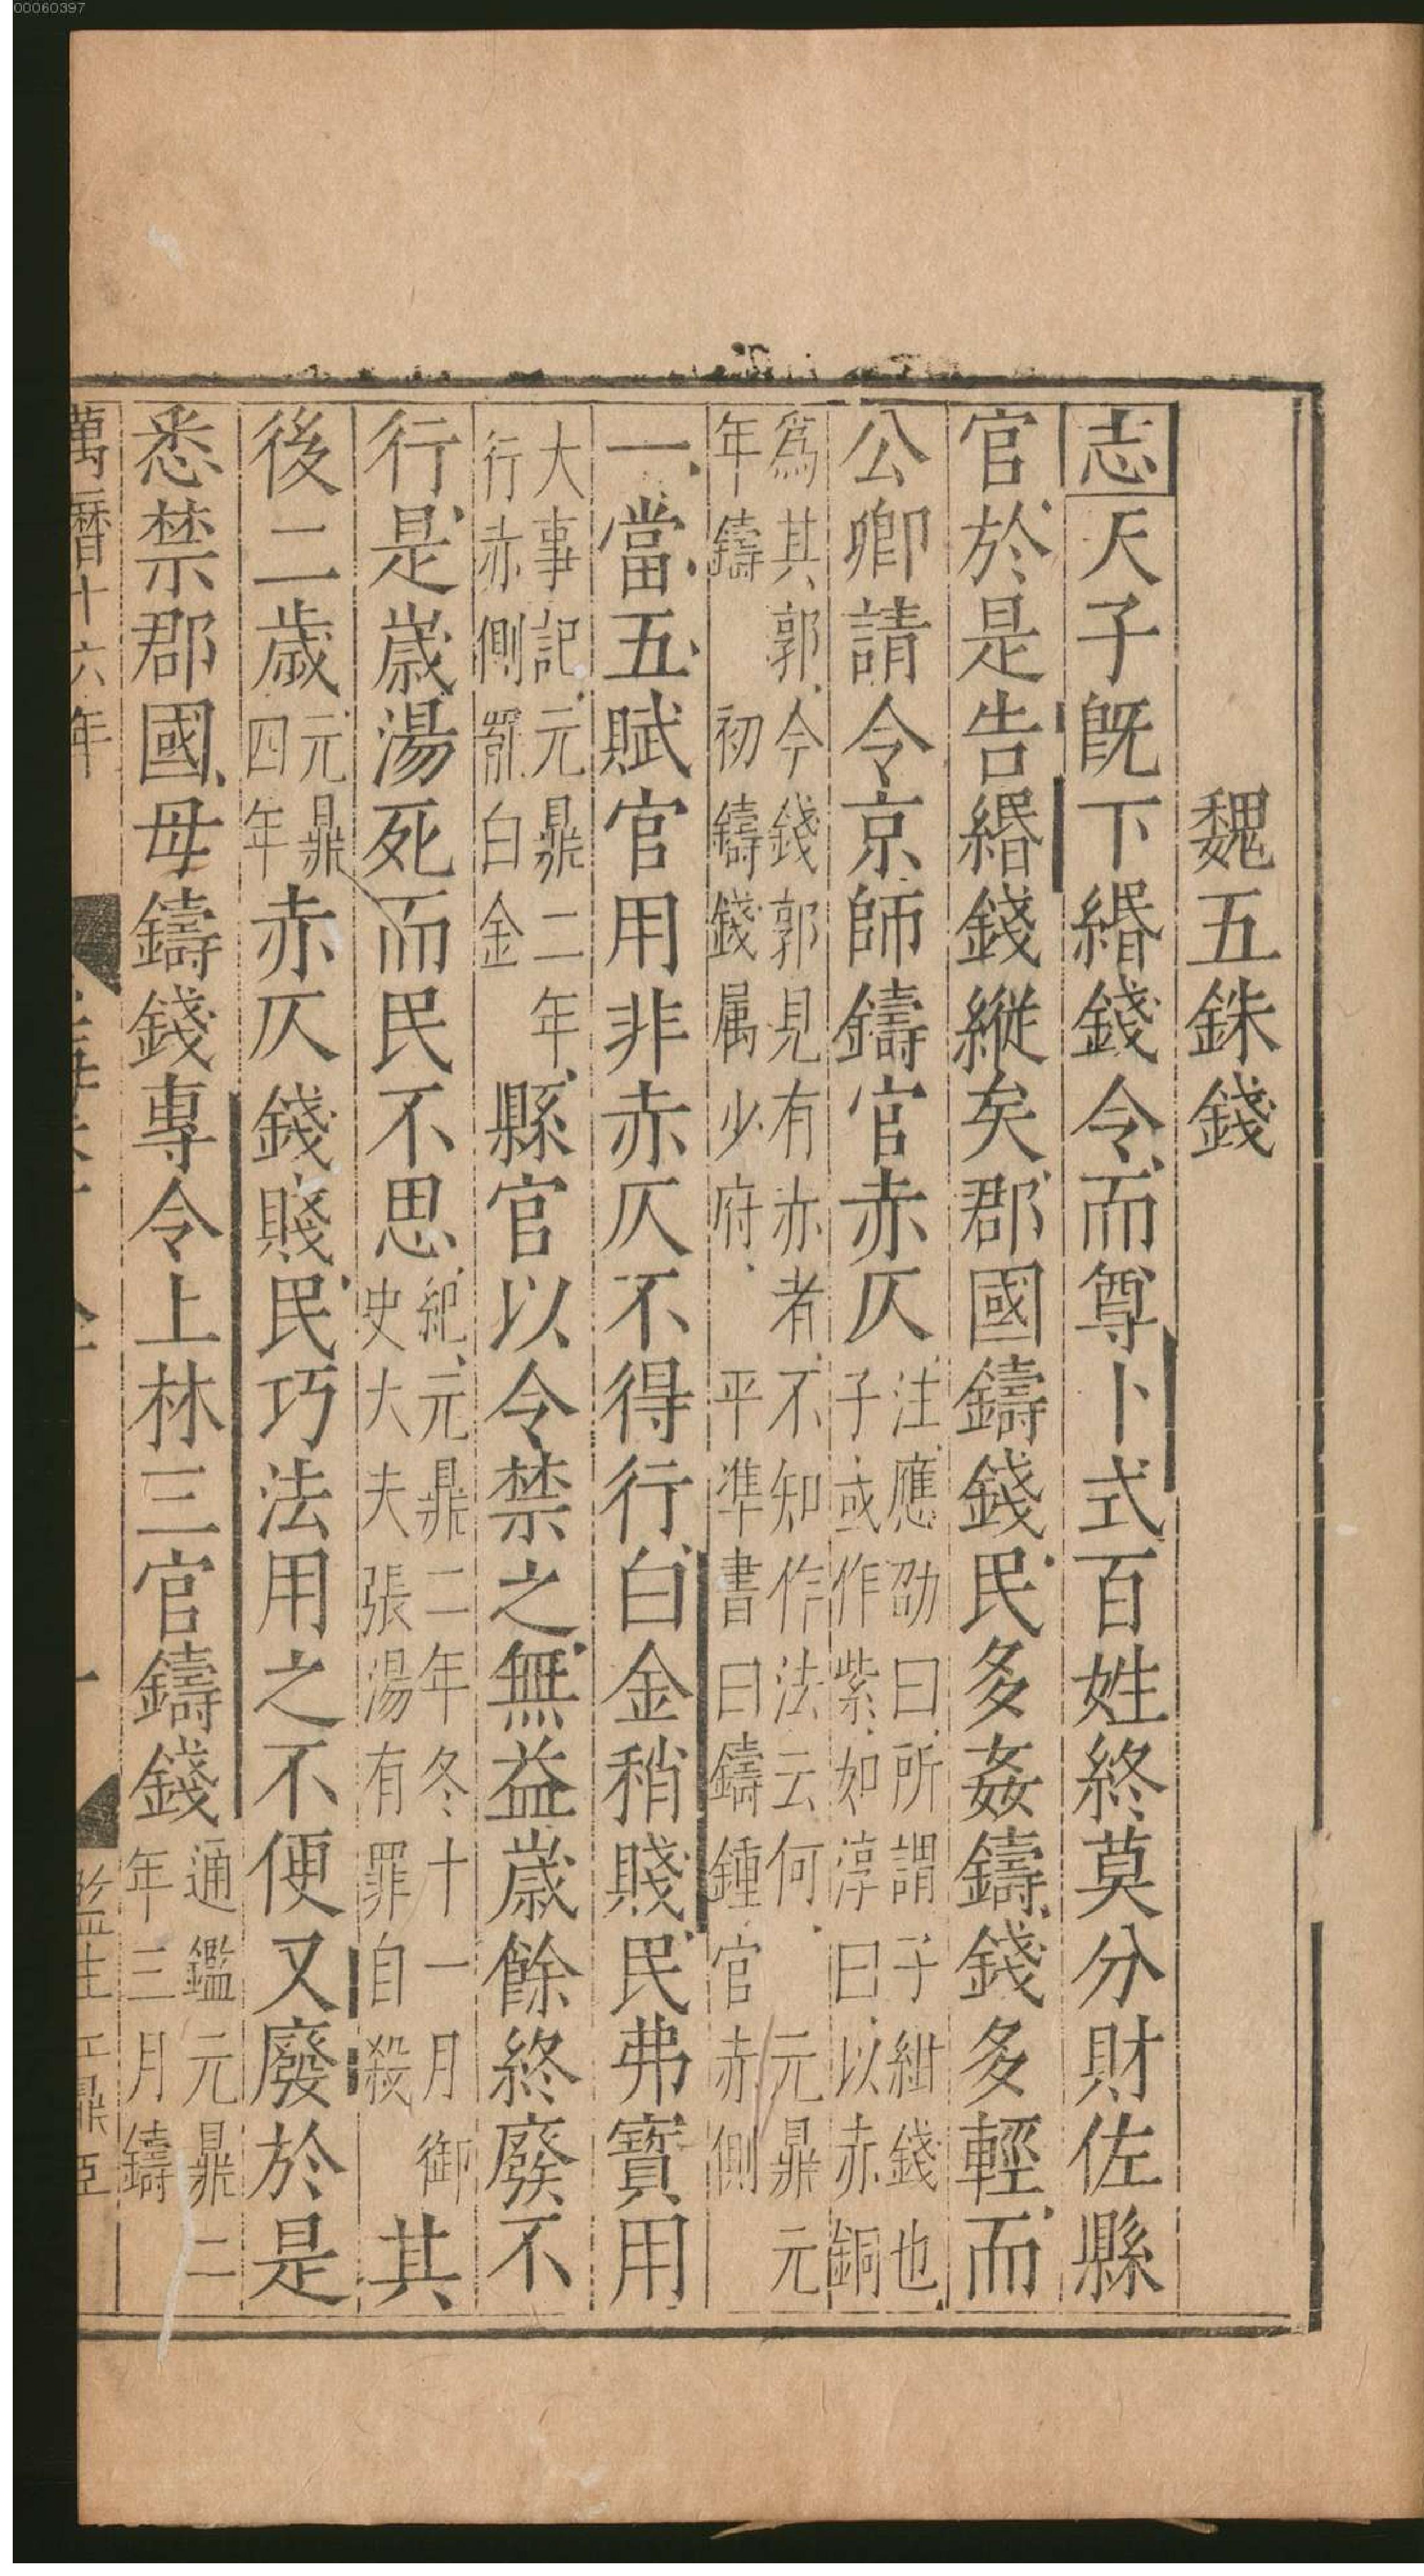 00060397
魏五銖錢
志天子旣下緡錢令而尊卜式百姓終莫分財佐縣
官於是告緡錢縱矣郡國鑄錢民多姦鑄錢多輕而
公卿請令京師鑄官赤仄注應劭曰所謂子紺錢也
子或作紫如淳曰以赤銅
爲其郭今錢郭見有赤者不知作法云何元鼎元
年鑄初鑄錢属少府平準書曰鑄鍾官赤側
一當五賦官用非赤仄不得行白金稍賤民弗寶用
大事記元鼎二年
行赤側罷白金
縣官以令禁之無益歲餘終廢不
行是歲湯死而民不思紀元鼎二年冬十一月御
史大夫張湯有罪自殺
其
後二歲元鼎
四年
赤仄錢賤民巧法用之不便又廢於是
悉禁郡國毋鑄錢專令上林三官鑄錢通鑑元鼎二
年三月鑄
萬曆十六年
監生